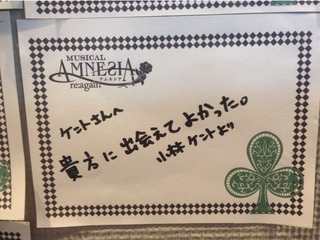 MUSICAL
AMNESIA
アムネシア
re:again
ケントさんへ
貴方に出会えてよかった。
小林 ケントより